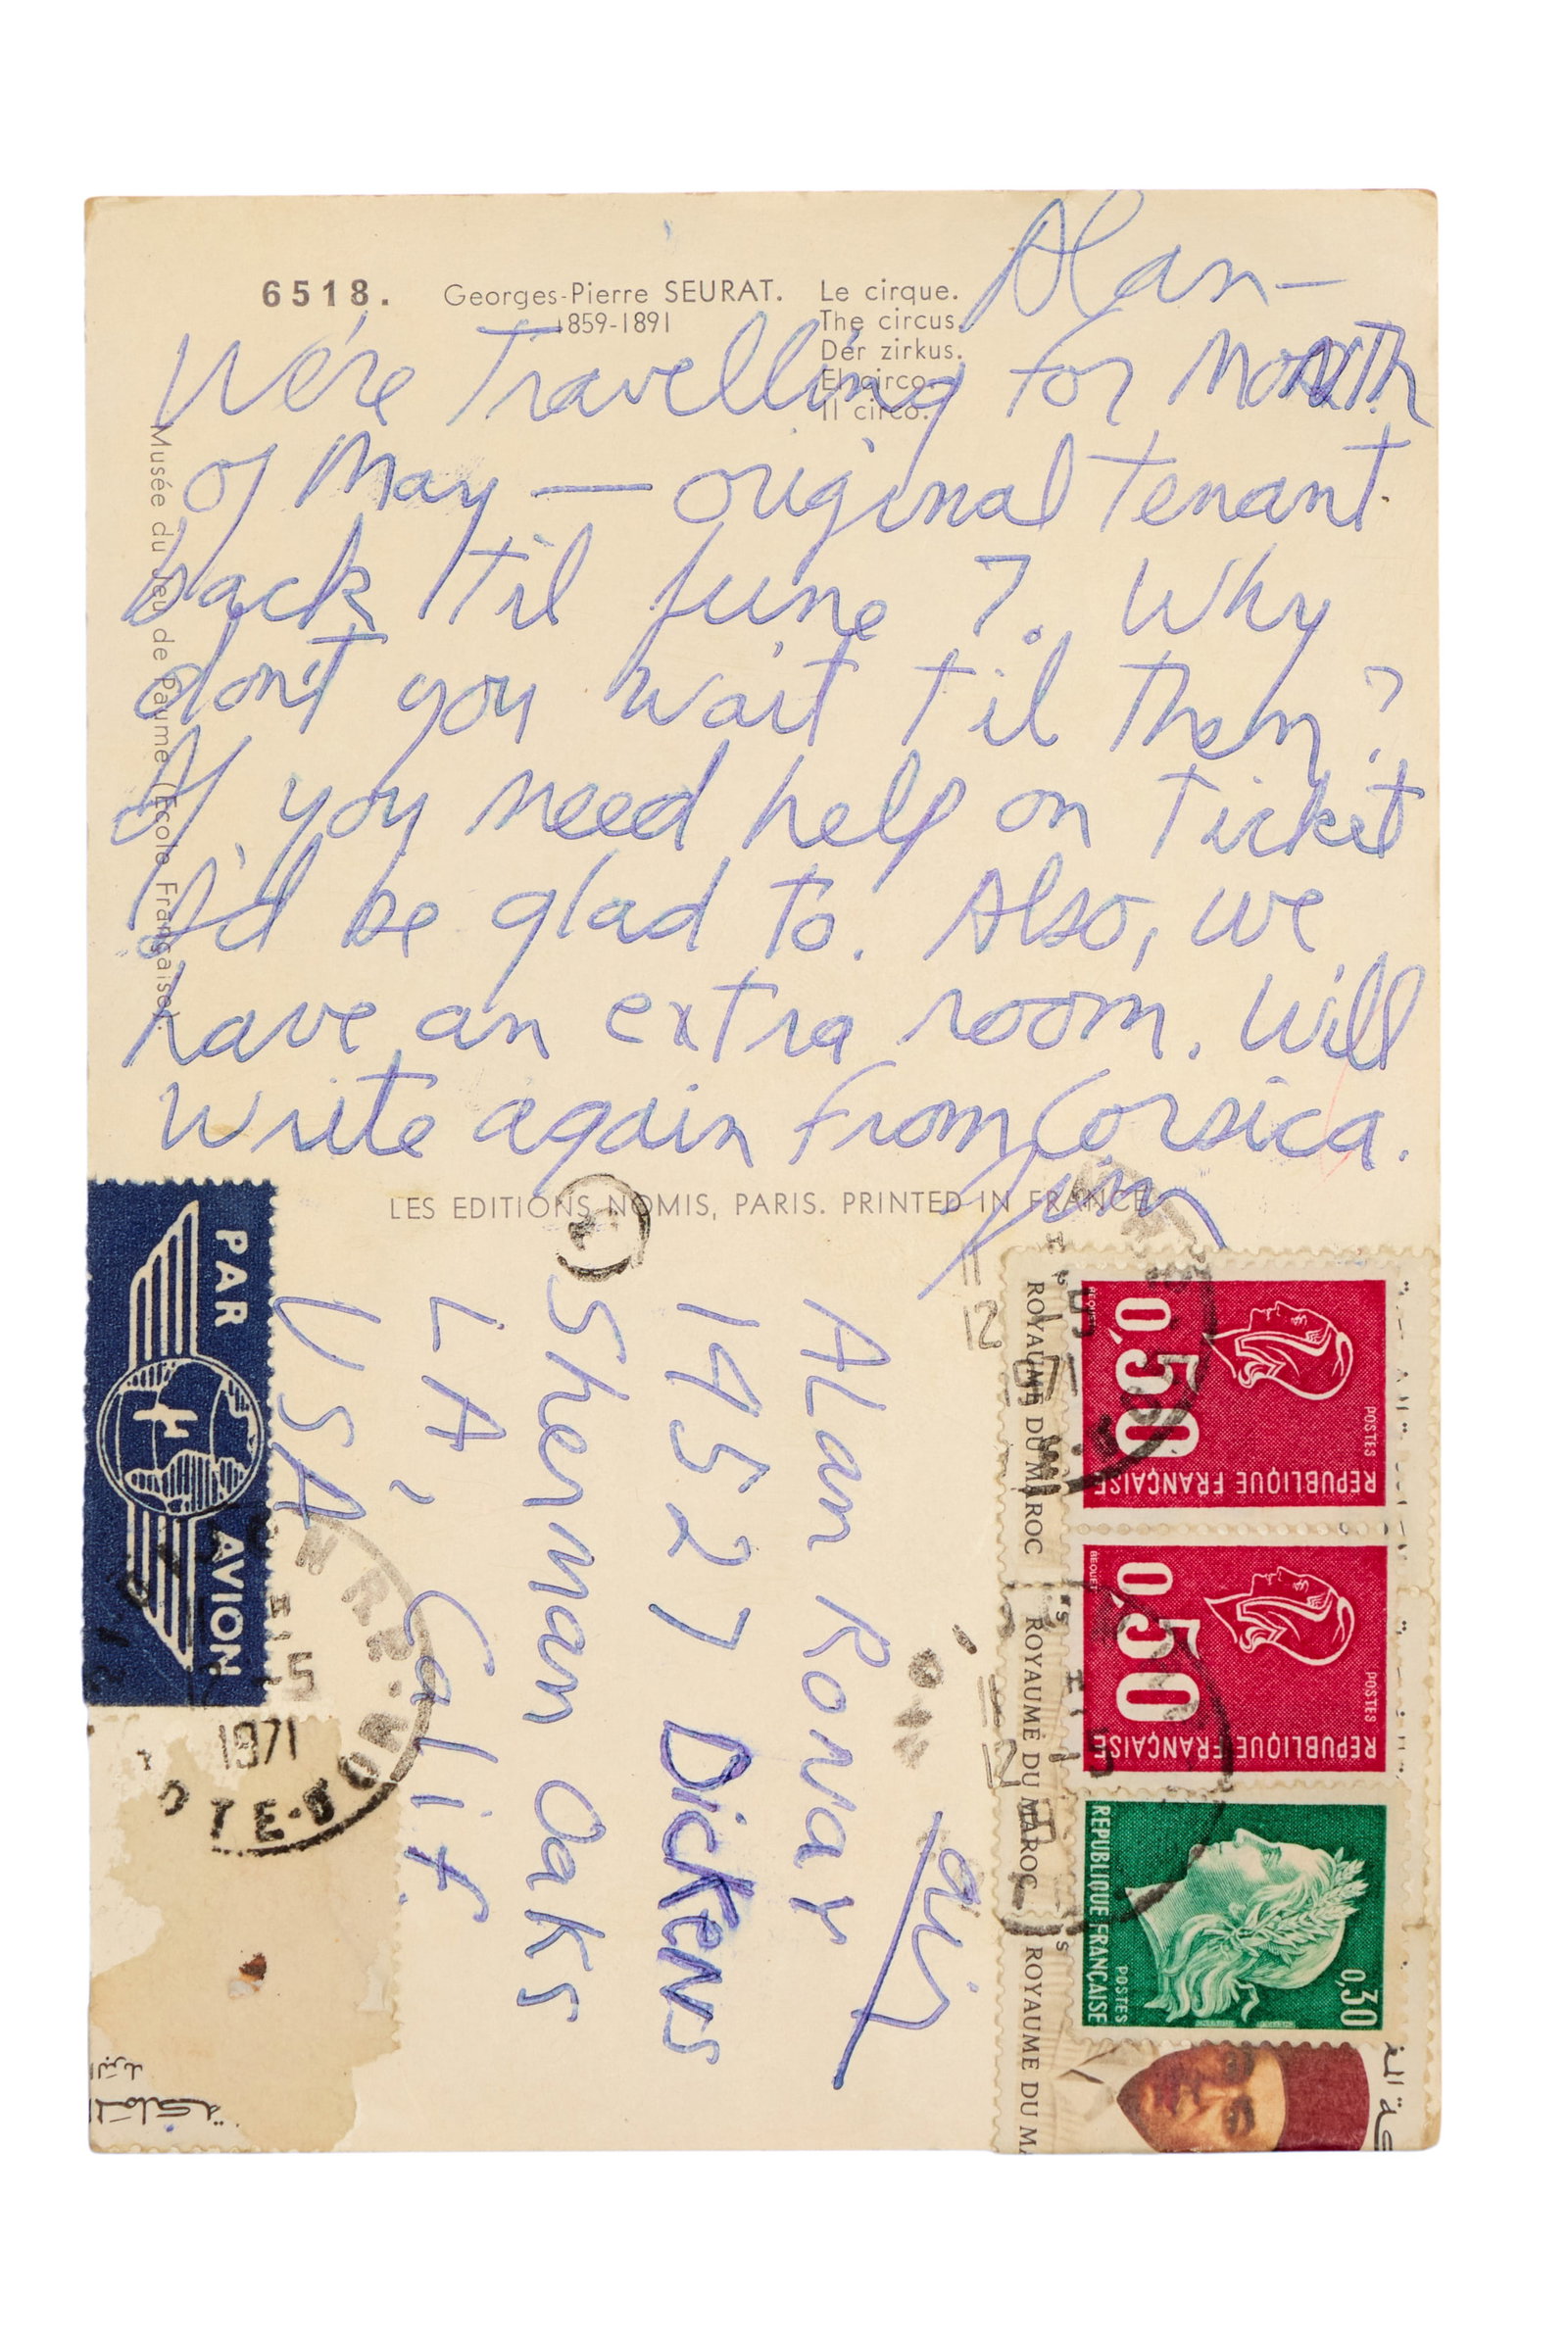 6518. Georges-Pierre SEURAT. Le cirque.
1859-1891 The circus.
Der zirkus.
El circo.
Il circo.
Musée du Jeu de Paume (Ecole Française).
Alan—
We're Travelling for Month
of May — original Tenant
back 'til June ?. Why
don't you wait Til Then?
If you need help on Ticket
I'd be glad To. Also, we
have an extra room. Will
write again from Corsica.
Jim
LES EDITIONS NOMIS, PARIS. PRINTED IN FRANCE
air
Alan Ronay
14527 Dickens
Sherman Oaks
LA, Calif.
USA
PAR AVION
1971
0,50
POSTES
REPUBLIQUE FRANÇAISE
BEQUET
0,50
POSTES
REPUBLIQUE FRANÇAISE
BEQUET
0,30
POSTES
REPUBLIQUE FRANÇAISE
ROYAUME DU MAROC
ROYAUME DU MAROC
ROYAUME DU MA